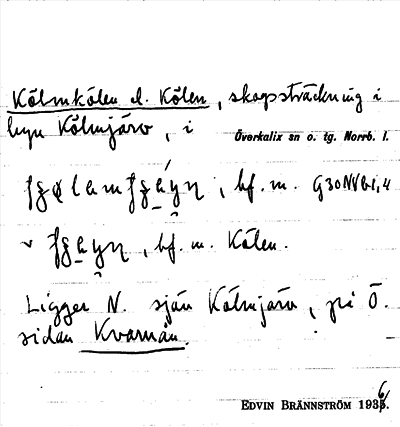 Kölmkölen el. Kölen, skogssträckning i
byn Kölmjärv, i
Överkalix sn o. tg. Norrb. l.
bf. m. G30NV b1,4
v bf. m. Kölen.
Ligger N. sjön Kölmjärv, på Ö.
sidan Kvarnån.
EDVIN BRÄNNSTRÖM 1936.